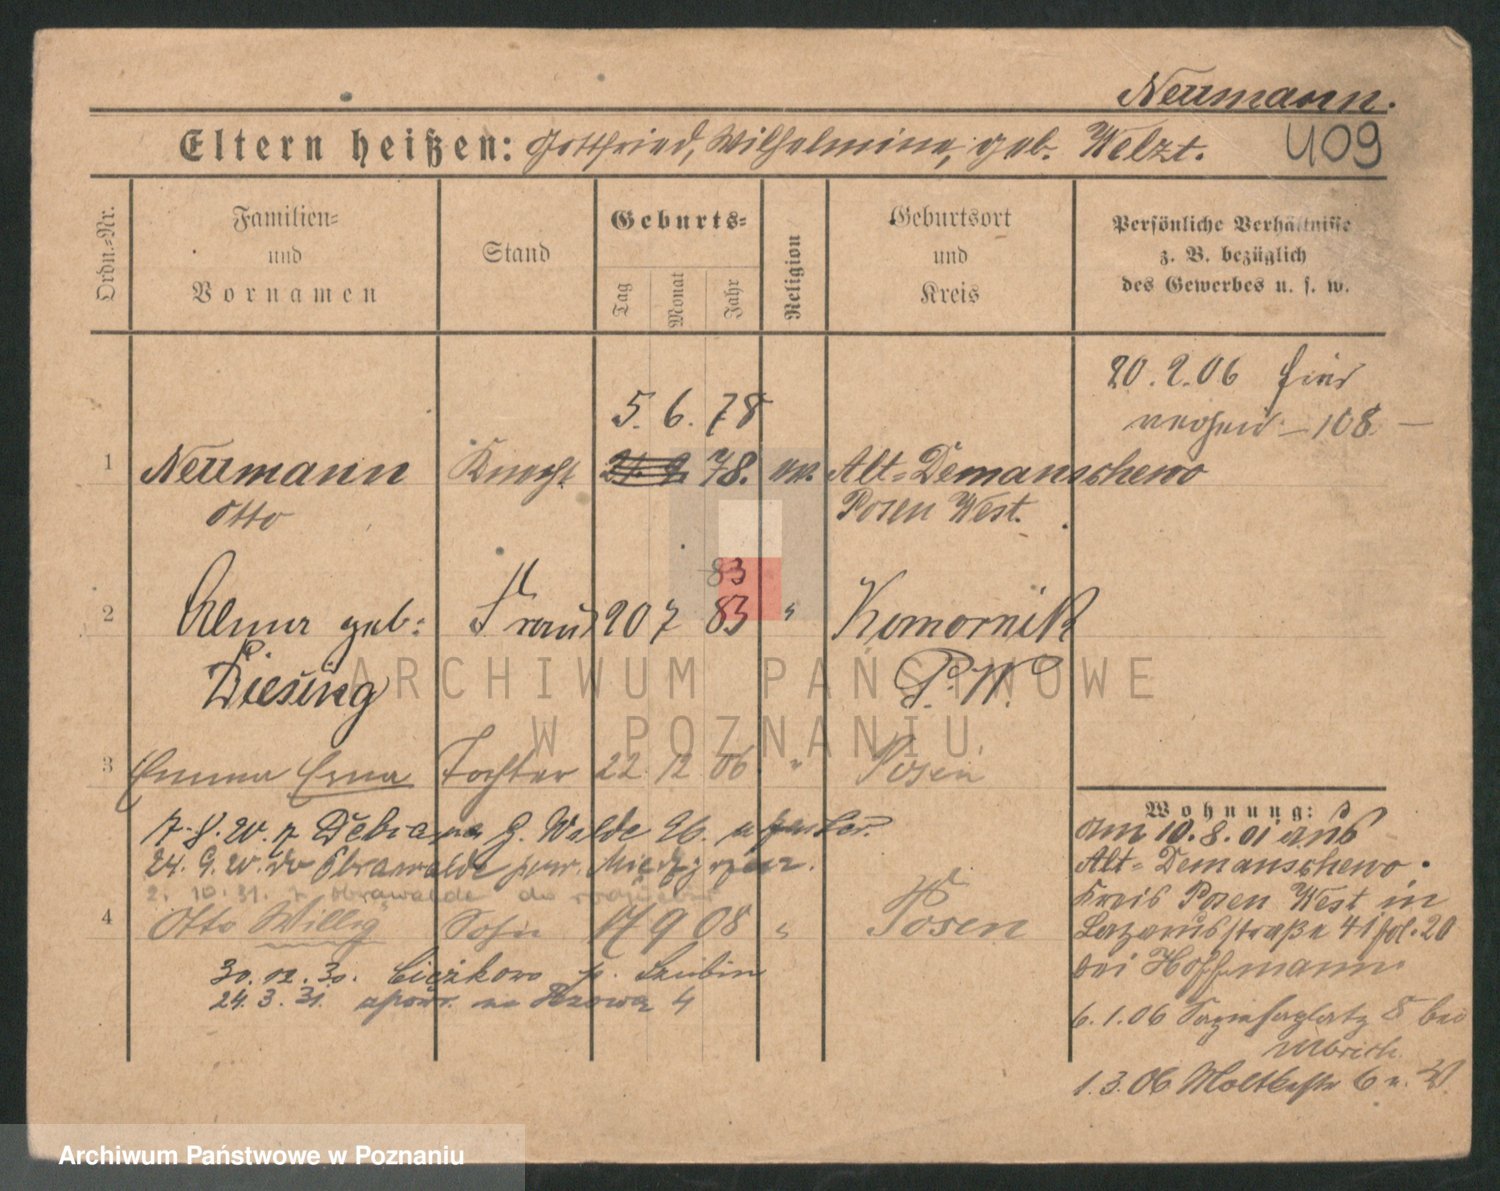 Neumann.
Eltern heißen: Gottfried, Wilhelmine, geb. Welzt.
409
Ordn.-Nr.
Familien- und Vornamen
Stand
Geburts-
Tag
Monat
Jahr
Religion
Geburtsort und Kreis
Persönliche Verhältnisse
z. B. bezüglich
des Gewerbes u. s. w.
20.2.06
108 —
5. 6. 78
1 Neumann Knecht 21. 9. 78. ev. Alt-Demanschewo
Otto Posen West.
83
2 Alma geb: Frau 20 7 83 " Komornik
Diesing P. W.
3 Emma Erna Tochter 22 12 06 " Posen
7.8.20. z Debca G. Wilde 26.
24. 9. 20. do Obrawalde pow.
2. 10. 31. z Obrawalde do
4 Otto Willig Sohn 17 9 08 " Posen
30. 12. 30. p. Szubin
24. 3. 31. 4
Wohnung:
Am 10.8.01 aus
Alt-Demanschewo.
Kreis Posen West in
Lazarusstraße 41 fol. 20
bei Hoffmann
6.1.06 Sapiehaplatz 8 bei
Ulbrich
1.3.06 Moltkestr 6
ARCHIWUM PAŃSTWOWE
W POZNANIU
Archiwum Państwowe w Poznaniu